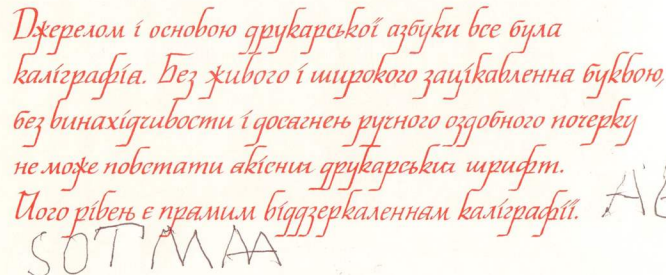 Джерелом і основою друкарської азбуки все була
каліграфія. Без живого і широкого зацікавлення буквою,
без винахідчивости і досягнень ручного оздобного почерку
не може повстати якісний друкарський шрифт.
Його рівень є прямим віддзеркаленням каліграфії.
SOTMAA